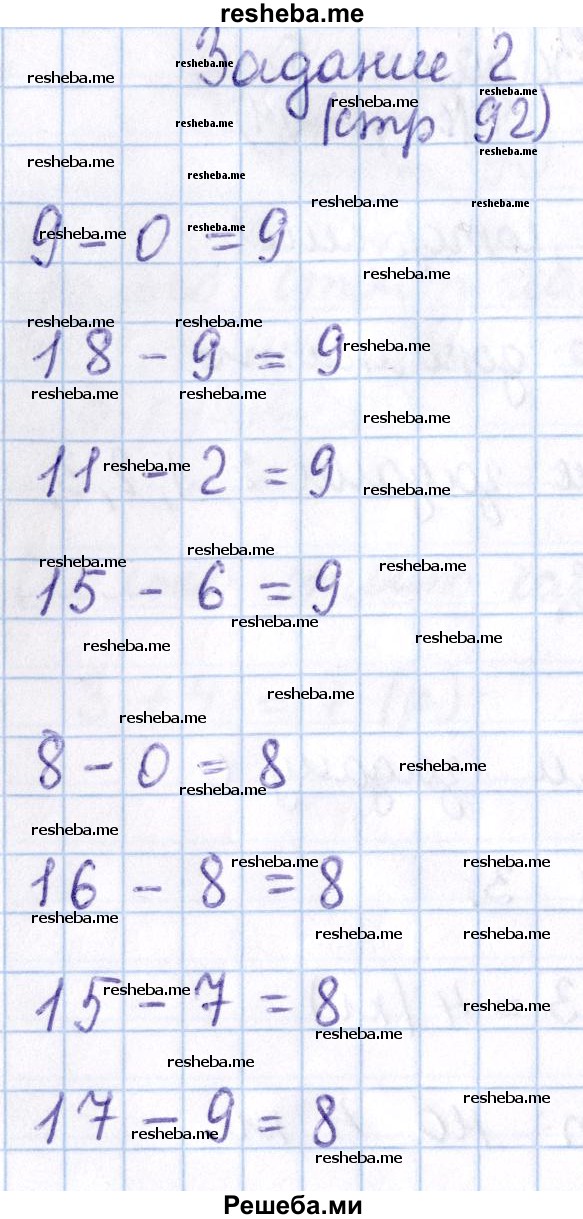 resheba.me
Задание 2
(стр 92)
9 - 0 = 9
18 - 9 = 9
11 - 2 = 9
15 - 6 = 9
8 - 0 = 8
16 - 8 = 8
15 - 7 = 8
17 - 9 = 8
Решеба.ми